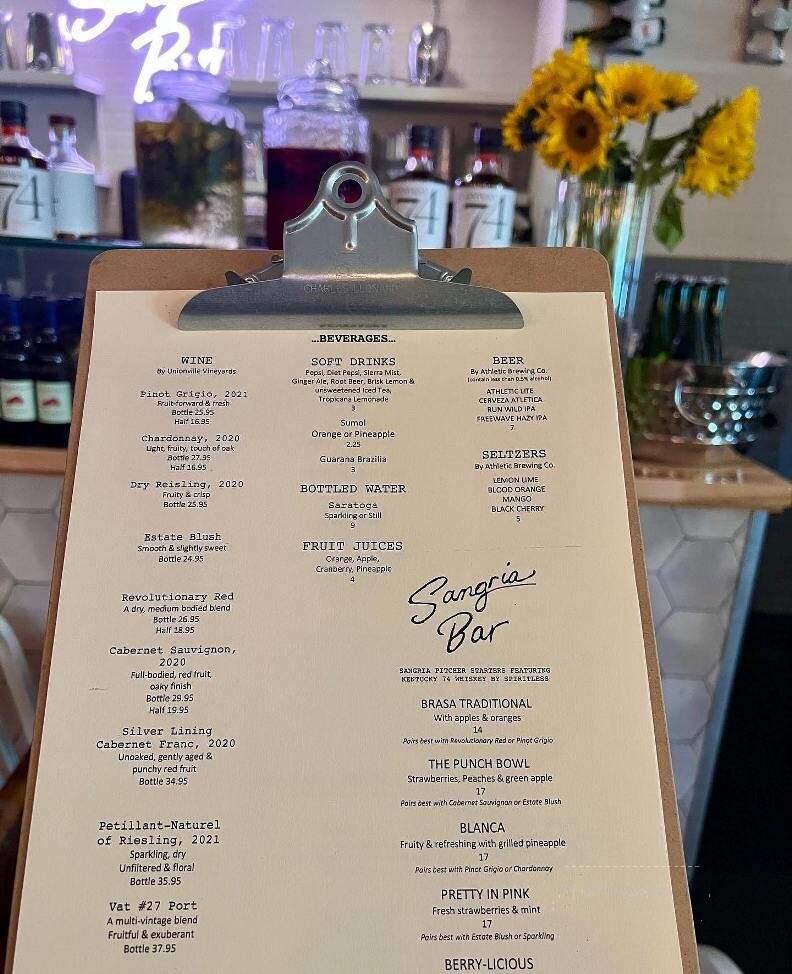 Sangria
Bar
74
74
74
CHARLES LEONARD
...BEVERAGES...
WINE
By Unionville Vineyards
Pinot Grigio, 2021
Fruit-forward & fresh
Bottle 25.95
Half 16.95
Chardonnay, 2020
Light, fruity, touch of oak
Bottle 27.95
Half 16.95
Dry Reisling, 2020
Fruity & crisp
Bottle 25.95
Estate Blush
Smooth & slightly sweet
Bottle 24.95
Revolutionary Red
A dry, medium bodied blend
Bottle 26.95
Half 18.95
Cabernet Sauvignon,
2020
Full-bodied, red fruit,
oaky finish
Bottle 29.95
Half 19.95
Silver Lining
Cabernet Franc, 2020
Unoaked, gently aged &
punchy red fruit
Bottle 34.95
Petillant-Naturel
of Riesling, 2021
Sparkling, dry
Unfiltered & floral
Bottle 35.95
Vat #27 Port
A multi-vintage blend
Fruitful & exuberant
Bottle 37.95
SOFT DRINKS
Pepsi, Diet Pepsi, Sierra Mist,
Ginger Ale, Root Beer, Brisk Lemon &
unsweetened Iced Tea,
Tropicana Lemonade
3
Sumol
Orange or Pineapple
2.25
Guarana Brazilia
3
BOTTLED WATER
Saratoga
Sparkling or Still
9
FRUIT JUICES
Orange, Apple,
Cranberry, Pineapple
4
BEER
By Athletic Brewing Co.
(contain less than 0.5% alcohol)
ATHLETIC LITE
CERVEZA ATLETICA
RUN WILD IPA
FREEWAVE HAZY IPA
7
SELTZERS
By Athletic Brewing Co.
LEMON LIME
BLOOD ORANGE
MANGO
BLACK CHERRY
5
Sangria
Bar
SANGRIA PITCHER STARTERS FEATURING
KENTUCKY 74 WHISKEY BY SPIRITLESS
BRASA TRADITIONAL
With apples & oranges
14
Pairs best with Revolutionary Red or Pinot Grigio
THE PUNCH BOWL
Strawberries, Peaches & green apple
17
Pairs best with Cabernet Sauvignon or Estate Blush
BLANCA
Fruity & refreshing with grilled pineapple
17
Pairs best with Pinot Grigio or Chardonnay
PRETTY IN PINK
Fresh strawberries & mint
17
Pairs best with Estate Blush or Sparkling
BERRY-LICIOUS